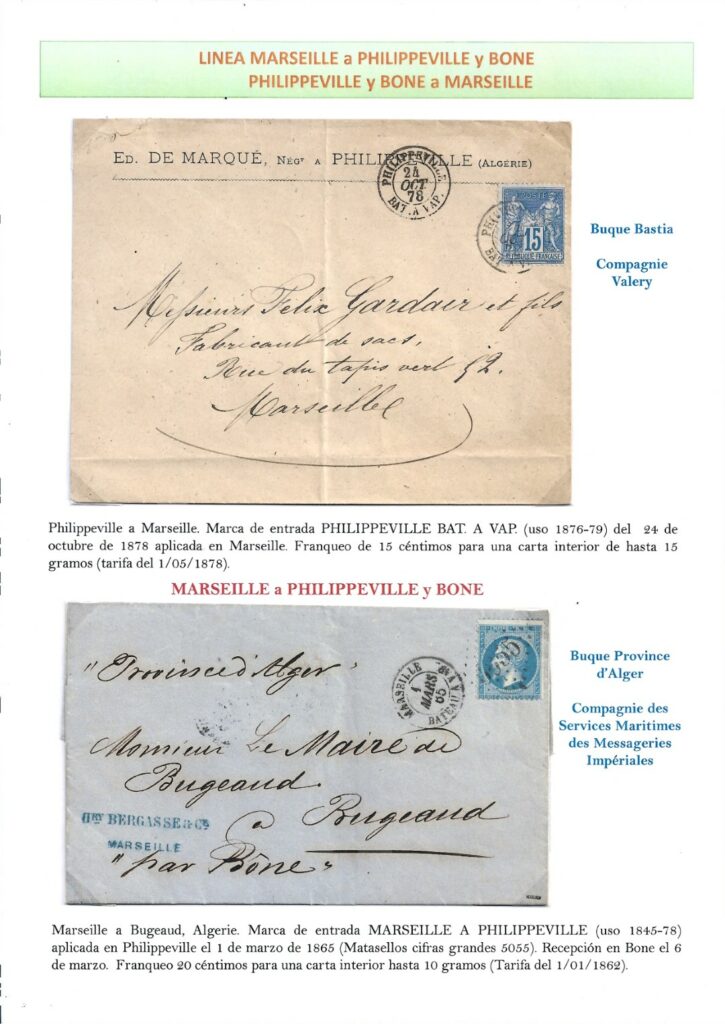 LINEA MARSEILLE a PHILIPPEVILLE y BONE
PHILIPPEVILLE y BONE a MARSEILLE
ED. DE MARQUÉ, NÉGT A PHILIPPEVILLE (ALGÉRIE)
PHILIPPEVILLE
24
OCT
78
BAT. A VAP.
POSTES
15
REPUBLIQUE FRANÇAISE
Buque Bastia
Compagnie
Valery
Messieurs Felix Gardair et fils
Fabricant de sacs,
Rue du tapis vert 52.
Marseille
Philippeville a Marseille. Marca de entrada PHILIPPEVILLE BAT. A VAP. (uso 1876-79) del 24 de
octubre de 1878 aplicada en Marseille. Franqueo de 15 céntimos para una carta interior de hasta 15
gramos (tarifa del 1/05/1878).
MARSEILLE a PHILIPPEVILLE y BONE
"Province d'Alger"
MARSEILLE
1
MARS
65
BATEAU
Monsieur Le Maire de
Bugeaud
a Bugeaud
HRY BERGASSE & CO
MARSEILLE
"par Bône"
Buque Province
d'Alger
Compagnie des
Services Maritimes
des Messageries
Impériales
Marseille a Bugeaud, Algerie. Marca de entrada MARSEILLE A PHILIPPEVILLE (uso 1845-78)
aplicada en Philippeville el 1 de marzo de 1865 (Matasellos cifras grandes 5055). Recepción en Bone el 6
de marzo. Franqueo 20 céntimos para una carta interior hasta 10 gramos (Tarifa del 1/01/1862).